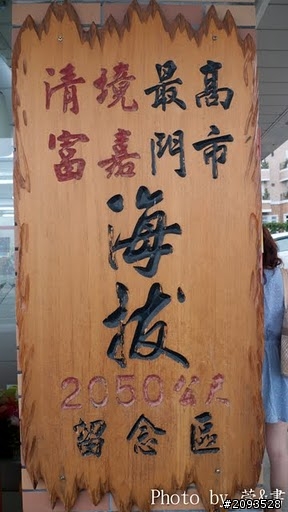 清境最高
富嘉門市
海拔
2050公尺
留念區
Photo by
#2093528